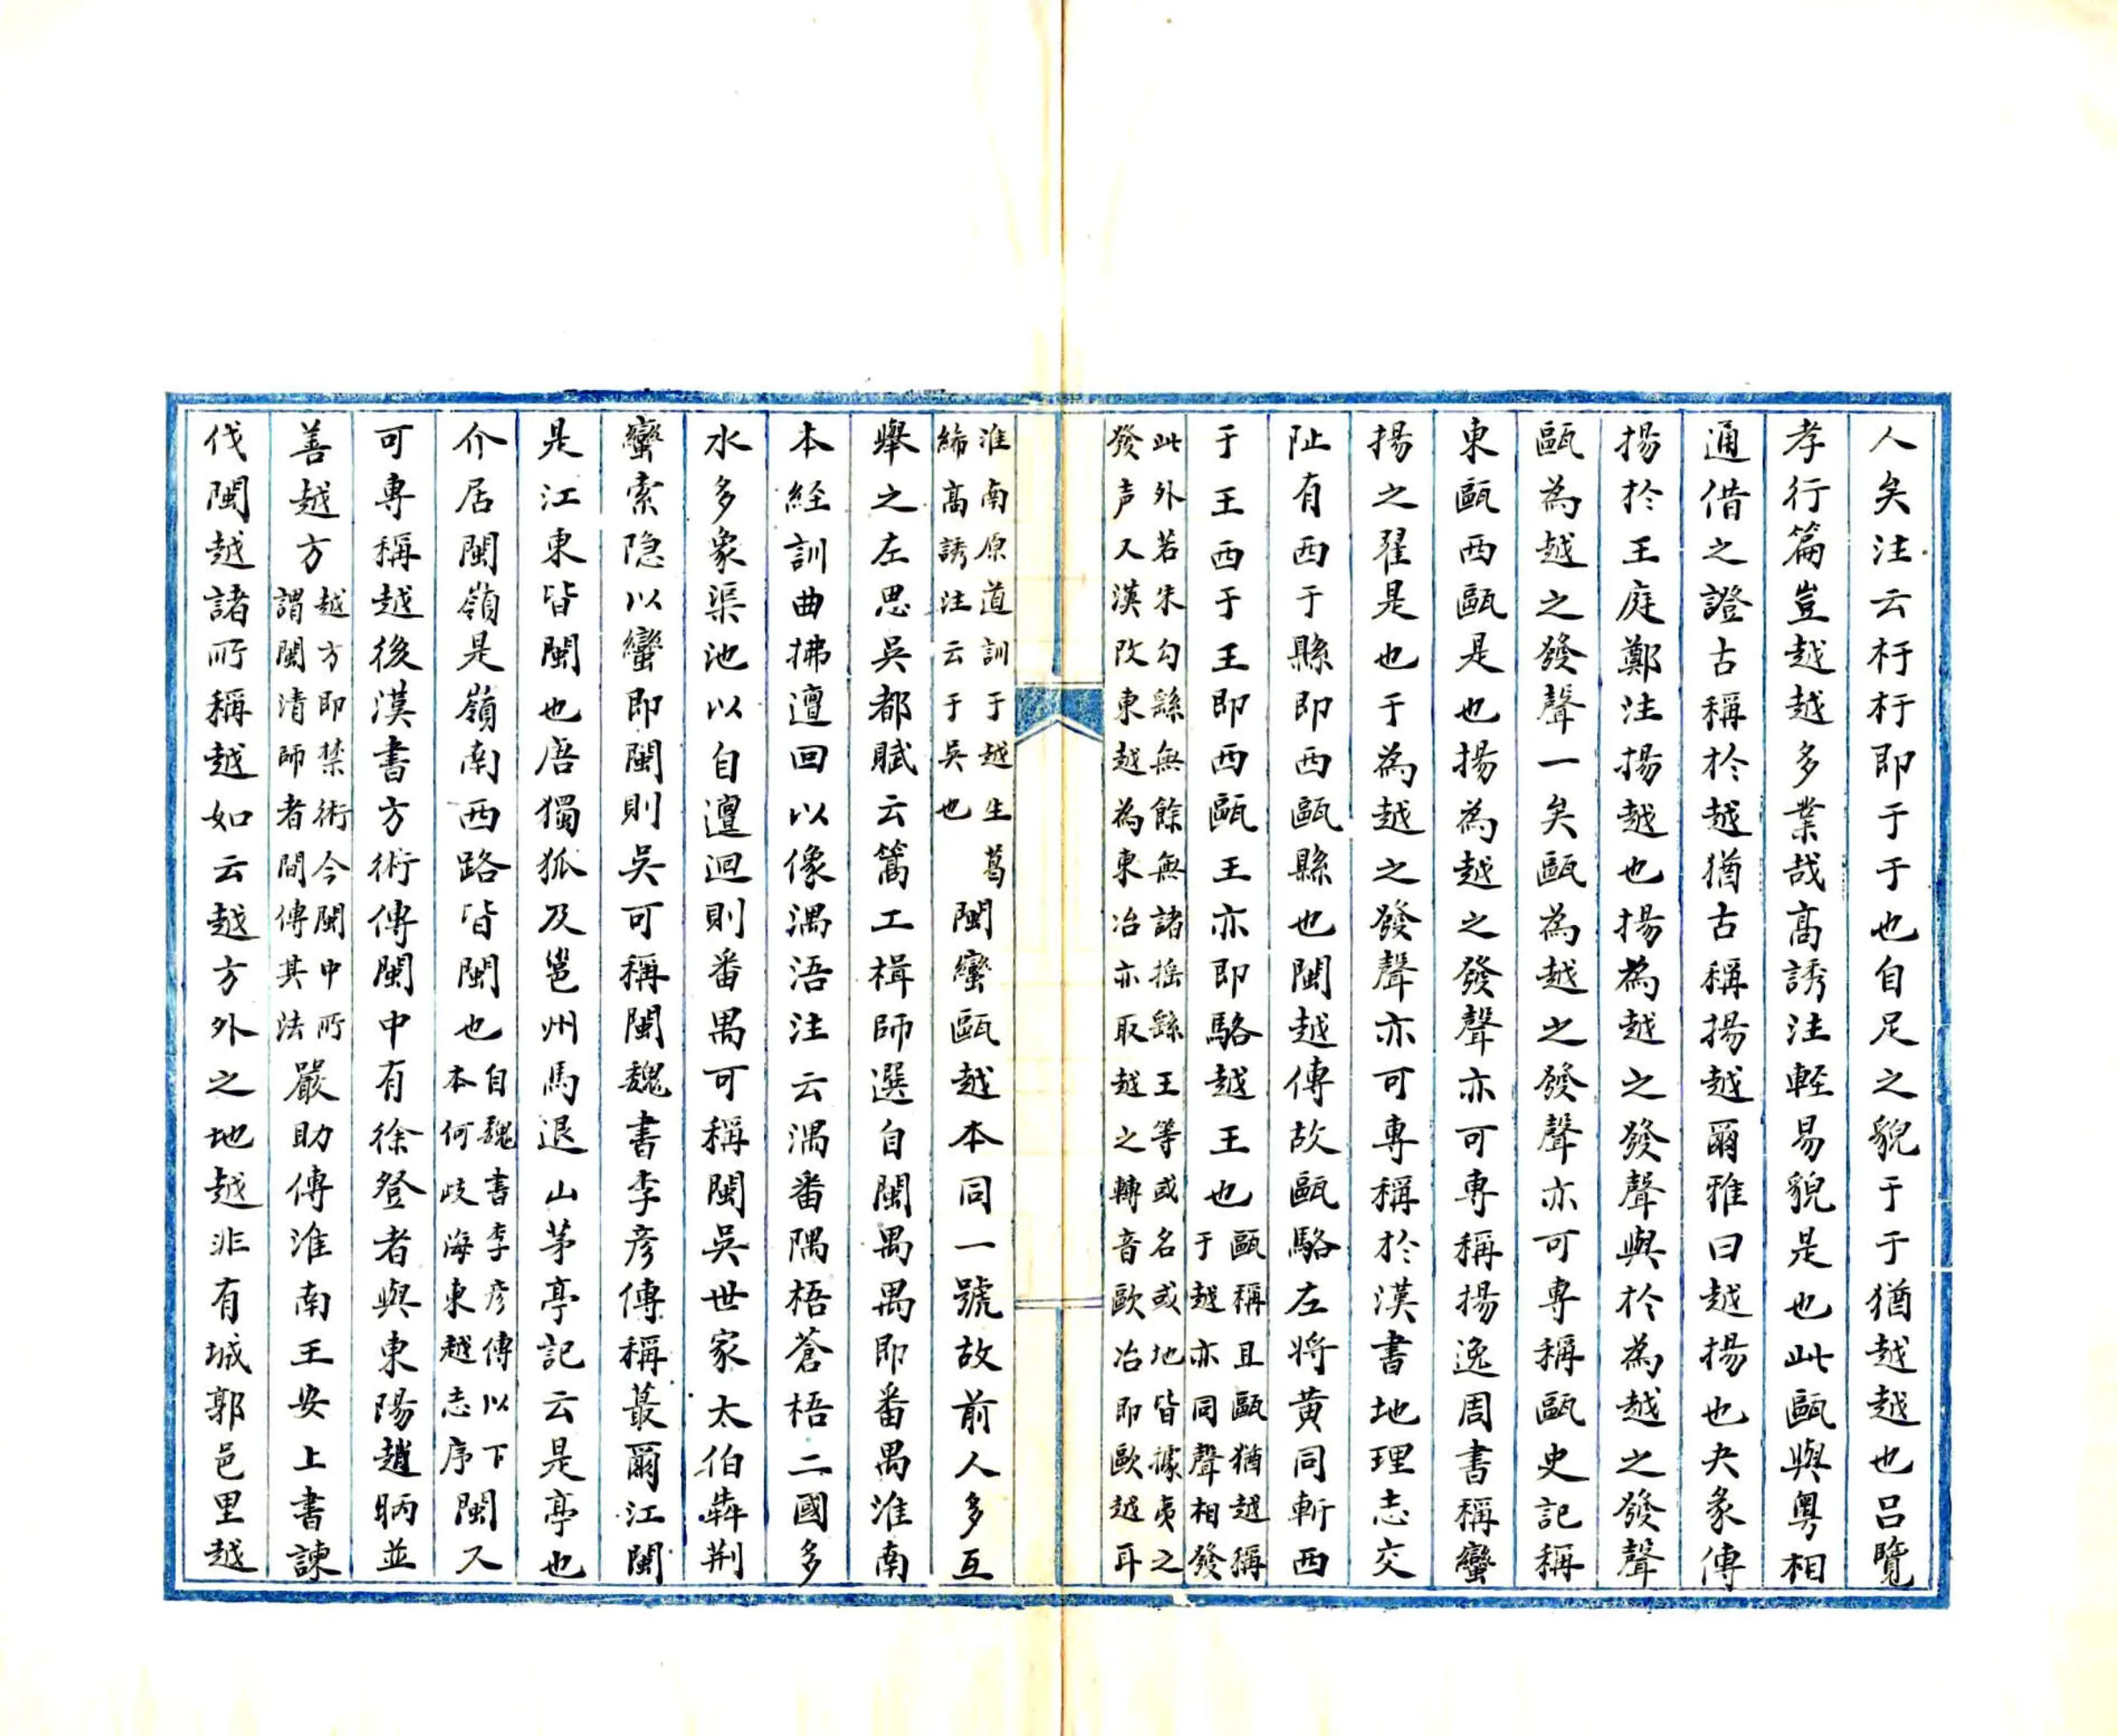 人矣注云杅杅即于于也自足之貌于于猶越越也吕覽
孝行篇豈越越多業哉高誘注輕易貌是也此甌與粤相
通借之證古稱於越猶古稱揚越爾雅曰越揚也夬彖傳
揚於王庭鄭注揚越也揚為越之發聲與於為越之發聲
甌為越之發聲一矣甌為越之發聲亦可專稱甌史記稱
東甌西甌是也揚為越之發聲亦可專稱揚逸周書稱蠻
揚之翟是也于為越之發聲亦可專稱於漢書地理志交
阯有西于縣即西甌縣也閩越傳故甌駱左将黄同斬西
于王西于王即西甌王亦即駱越王也甌稱且甌猶越稱
于越亦同聲相發
此外若朱勾繇無餘無諸揺繇王等或名或地皆據夷之
發声又漢改東越為東冶亦取越之轉音歐冶即歐越耳
淮南原道訓于越生葛
絺高誘注云于吳也
閩蠻甌越本同一號故前人多互
舉之左思吳都賦云篙工楫師選自閩禺禺即番禺淮南
本経訓曲拂邅回以像湡浯注云湡番隅梧蒼梧二國多
水多象渠池以自邅迴則番禺可稱閩吳世家太伯犇荆
蠻索隐以蠻即閩則吳可稱閩魏書李彦傳稱蕞爾江閩
是江東皆閩也唐獨狐及邕州馬退山茅亭記云是亭也
介居閩嶺是嶺南西路皆閩也自魏書李彦傳以下
本何歧海東越志序
閩又
可專稱越後漢書方術傳閩中有徐登者與東陽趙昞並
善越方越方即禁術今閩中所
謂閩清師者間傳其法
嚴助傳淮南王安上書諫
伐閩越諸所稱越如云越方外之地越非有城郭邑里越